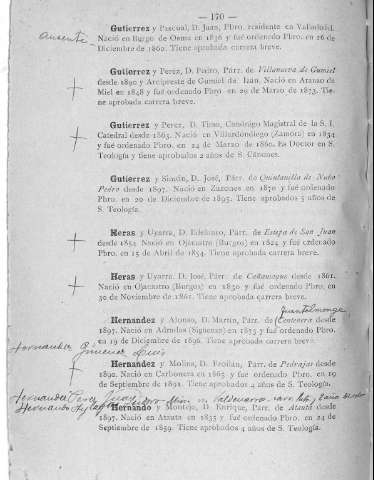 — 170 —
Ausente
Gutierrez y Pascual, D. Juan, Pbro. residente en Valladolid.
Nació en Burgo de Osma en 1836 y fué ordenado Pbro. en 26 de
Diciembre de 1860. Tiene aprobada carrera breve.
Gutierrez y Perez, D. Pedro, Párr. de Villanueva de Gumiel
desde 1890 y Arcipreste de Gumiel de Izan. Nació en Aranzo de
Miel en 1848 y fué ordenado Pbro. en 29 de Marzo de 1873. Tie-
ne aprobada carrera breve.
Gutierrez y Perez, D. Timo, Canónigo Magistral de la S. I.
Catedral desde 1863. Nació en Villardondiego (Zamora) en 1834
y fué ordenado Pbro. en 24 de Marzo de 1860. Es Doctor en S.
Teología y tiene aprobados 2 años de S. Cánones.
Gutierrez y Simón, D. José, Párr. de Quintanilla de Nuño
Pedro desde 1897. Nació en Zuzones en 1870 y fué ordenado
Pbro. en 20 de Diciembre de 1895. Tiene aprobados 5 años de
S. Teología.
Heras y Uyarra, D. Ildefonso, Párr. de Estepa de San Juan
desde 1854. Nació en Ojacastro (Burgos) en 1824 y fué ordenado
Pbro. en 15 de Abril de 1854. Tiene aprobada carrera breve.
Heras y Uyarra, D. José, Párr. de desde 1861.
Nació en Ojacastro (Burgos) en 1830 y fué ordenado Pbro. en
30 de Noviembre de 1861. Tiene aprobada carrera breve.
Hernandez y Alonso, D. Martin, Párr. de (Centenera desde
1897. Nació en Adradas (Sigüenza) en 1873 y fué ordenado Pbro.
en 19 de Diciembre de 1896. Tiene aprobada carrera breve.
Hernandez Gimenez Luis
Hernandez y Molina, D. Froilán, Párr. de Pedrajas desde
1892. Nació en Carbonera en 1865 y fué ordenado Pbro. en 19
de Septiembre de 1891. Tiene aprobados 4 años de S. Teología.
Hernandez
Hernando
Hernando y Montejo, D. Enrique, Párr. de Atauta desde
1897. Nació en Atauta en 1835 y fué ordenado Pbro. en 24 de
Septiembre de 1859. Tiene aprobados 4 años de S. Teología.